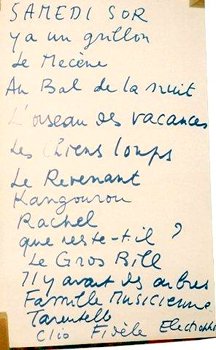 SAMEDI SOR
ya un grillon
Le Mécène
Au Bal de la nuit
L'oiseau des vacances
Les Chiens loups
Le Revenant
Kangourou
Rachel
que reste-t-il ?
Le Gros Bill
Il y avait des arbres
Famille Musicienne
Tarentelle
Clio Fidèle